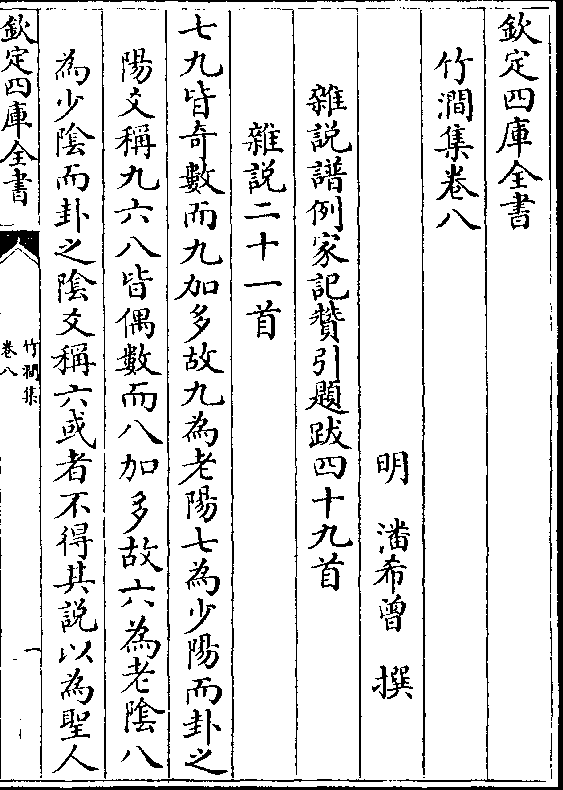 欽定四庫全書
竹澗集卷八
明 潘希曾 撰
雜說譜例家記贊引題跋四十九首
雜說二十一首
七九皆竒數而九加多故九為老陽七為少陽而卦之
陽爻稱九六八皆偶數而八加多故六為老陰八
為少陰而卦之陰爻稱六或者不得其說以為聖人
欽定四庫全書
竹澗集
卷八
一